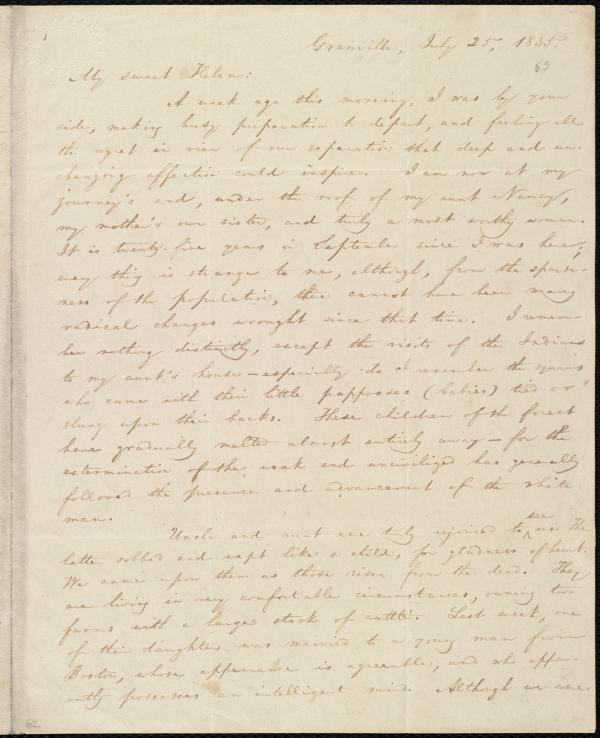 1
Granville, July 25, 1835.
63
My sweet Helen:
A week ago this morning, I was by your
side, making busy preparation to depart, and feeling all
the regret in view of our separation that deep and un-
changing affection could inspire. I am now at my
journey's end, under the roof of my aunt Nancy,
my mother's own sister, and truly a most worthy woman.
It is twenty-five years in September since I was here;
every thing is strange to me, although, from the sparse-
ness of the population, there cannot have been many
radical changes wrought since that time. I remem-
ber nothing distinctly, except the visits of the Indians
to my aunt's house—especially do I remember the squaws
who came with their little pappooses (babies) tied or
slung upon their backs. These children of the forest
have gradually melted almost entirely away—for the
extermination of the weak and uncivilized has generally
followed the presence and advancement of the white
man.
Uncle and aunt were truly rejoiced to see us. The
latter sobbed and wept like a child, for gladness of heart.
We came upon them as those risen from the dead. They
are living in very comfortable circumstances, owning two
farms with a large stock of cattle. Last week, one
of their daughters was married to a young man from
Boston, whose appearance is agreeable, and who appar-
ently possesses an intelligent mind. Although we were
62